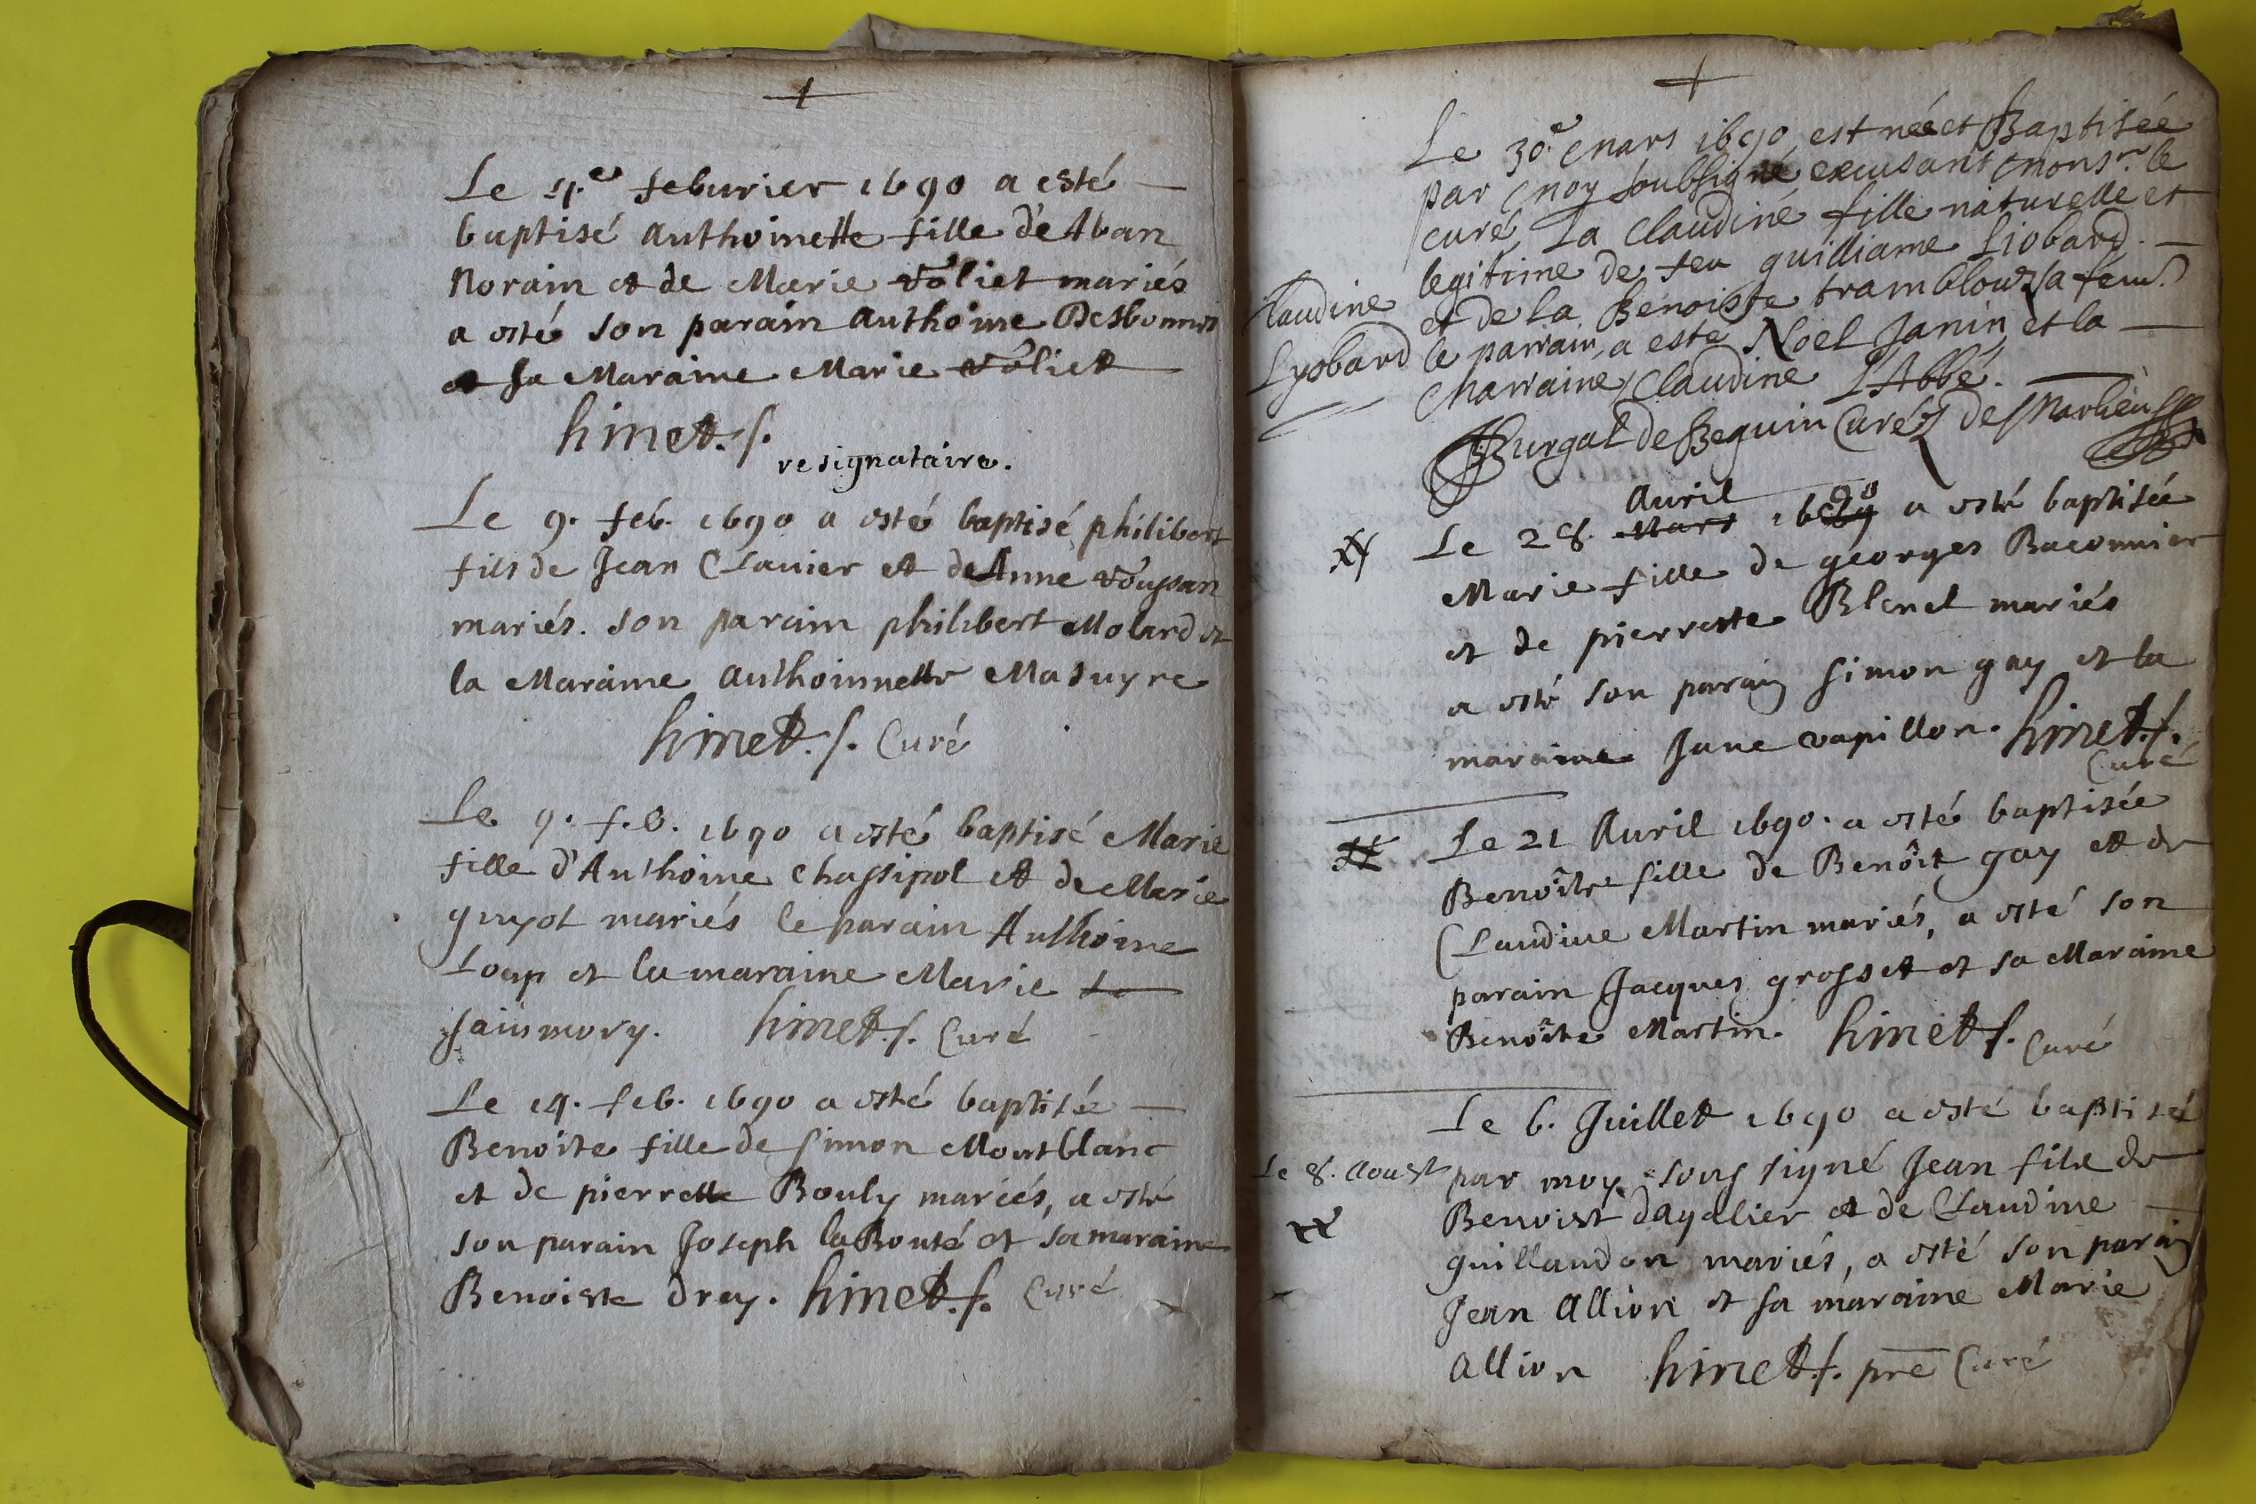 +
Le 4.e feburier 1690 a esté
baptisé Anthoinette fille d'Aban
Norain et de Marie voliet mariés
a esté son parain Anthoine Desbonnes
et sa Maraine Marie voliet
hinet. f.
resignataire.
Le 9. feb. 1690 a esté baptisé philibert
fils de Jean Clavier et de Anne
mariés. son parain philibert Molard et
la Maraine Anthoinnette Masuyre
hinet. f. Curé
Le 9. f.b. 1690 a esté baptisé Marie
fille d'Anthoine Chassipol et de Marie
guyot mariés le parain Anthoine
Loup et la maraine Marie
sainmory. hinet. f. Curé
Le 14. feb. 1690 a esté baptisée
Benoite fille de simon Montblanc
et de pierrette Bouly mariés, a esté
son parain Joseph laBonté et sa maraine
Benoiste drey. hinet. f. Curé
+
Le 30.e mars 1690 est née et Baptisée
par moy soubsigné excusant Monsr. le
curé, La Claudine fille naturelle et
legitime de feu guilliame Liobard.
et de la Benoiste tramblouz sa fem.
le parrain a esté Noel Janin, et la
Marraine Claudine L'Abbé.
Claudine
Lyobard
Burgat de Beguin Curé de Marlieu
Avril
Le 28. Mars 1690 a esté baptisée
Marie fille de georges Baconnier
et de pierrette Blenet mariés
a esté son parain simon gay et la
maraine Jane vapillon. hinet. f.
Curé
Le 21 Avril 1690. a esté baptisée
Benoîte fille de Benôit gay et de
Claudine Martin mariés, a esté son
parain Jacques grosset et sa Maraine
Benoîte Martin. hinet f. Curé
Le 6. Juillet 1690 a esté baptisé
Le 8. Aoust
par moy sous signé Jean fils de
Benoist dayalier et de Claudine
guillaudon mariés, a esté son parain
Jean Allion et sa maraine Marie
Allion hinet. f. pre Curé